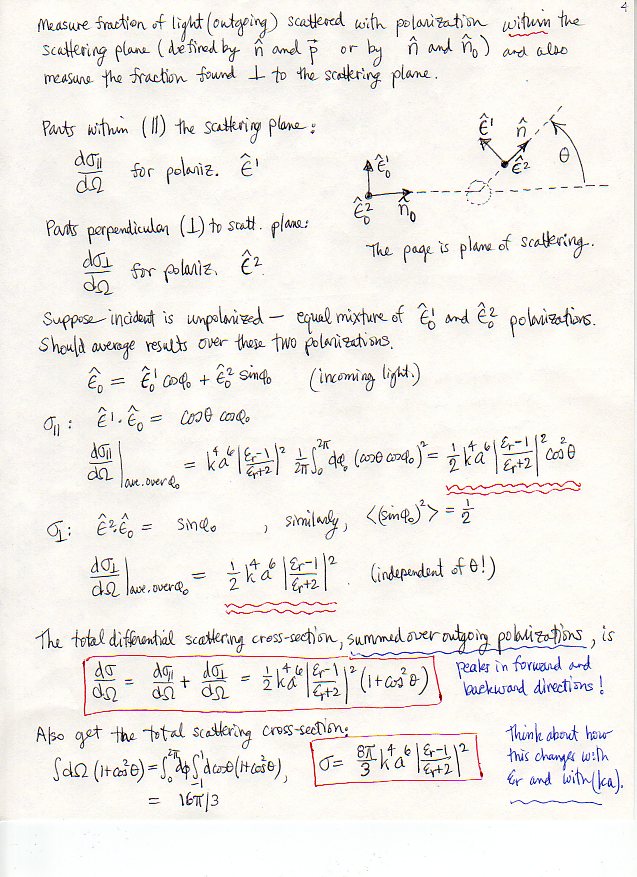 4
Measure fraction of light (outgoing) scattered with polarization within the
scattering plane (defined by n̂ and p⃗ or by n̂ and n̂₀) and also
measure the fraction found ⊥ to the scattering plane.
Parts within (||) the scattering plane:
dσ||/dΩ for polariz. ε̂¹
ε̂¹ n̂ ε̂² θ
ε̂₀¹ ε̂₀² n̂₀
Parts perpendicular (⊥) to scatt. plane:
The page is plane of scattering.
dσ⊥/dΩ for polariz. ε̂²
Suppose incident is unpolarized — equal mixture of ε̂₀¹ and ε̂₀² polarizations.
Should average results over these two polarizations.
ε̂₀ = ε̂₀¹ cosφ₀ + ε̂₀² sinφ₀ (incoming light.)
σ||: ε̂¹·ε̂₀ = cosθ cosφ₀
dσ||/dΩ |ave.over φ₀ = k⁴a⁶ |(εr-1)/(εr+2)|² 1/2π ∫₀^2π dφ₀ (cosθ cosφ₀)² = 1/2 k⁴a⁶ |(εr-1)/(εr+2)|² cos²θ
σ⊥: ε̂²·ε̂₀ = sinφ₀ , similarly, <(sinφ₀)²> = 1/2
dσ⊥/dΩ |ave.over φ₀ = 1/2 k⁴a⁶ |(εr-1)/(εr+2)|² (independent of θ!)
The total differential scattering cross-section, summed over outgoing polarizations, is
dσ/dΩ = dσ||/dΩ + dσ⊥/dΩ = 1/2 k⁴a⁶ |(εr-1)/(εr+2)|² (1+cos²θ)
peaks in forward and
backward directions!
Also get the total scattering cross-section:
∫dΩ (1+cos²θ) = ∫₀^2π dφ ∫₋₁^1 dcosθ (1+cos²θ),
= 16π/3
σ = 8π/3 k⁴a⁶ |(εr-1)/(εr+2)|²
Think about how
this changes with
εr and with (ka).